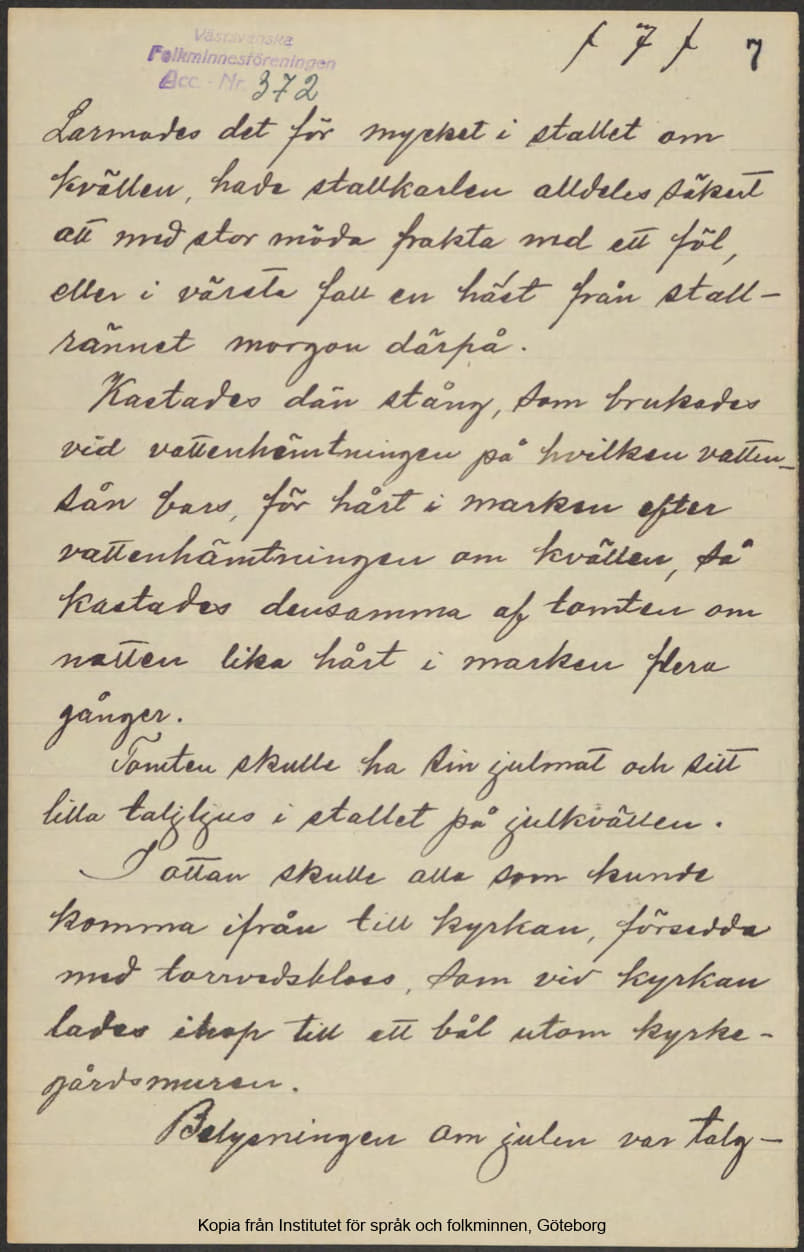 Västsvenska
Folkminnesföreningen
Acc. - Nr. 372
/ 7 / 7
Larmades det för mycket i stallet om
kvällen, hade stallkarlen alldeles säkert
att med stor möda frakta ned ett föl,
eller i värsta fall en häst från stall-
rännet morgon därpå.
Kastades dän stång, som brukades
vid vattenhämtningen på hvilken vatten-
sån bars, för hårt i marken efter
vattenhämtningen om kvällen, så
kastades densamma af tomten om
natten lika hårt i marken flera
gånger.
Tomten skulle ha sin julmat och sitt
lilla talgljus i stallet på julkvällen.
I ottan skulle alla som kunde
komma ifrån till kyrkan, försedda
med torrvedsbloss, som vid kyrkan
lades ihop till ett bål utom kyrke-
gårdsmuren.
Belysningen om julen var talg-
Kopia från Institutet för språk och folkminnen, Göteborg